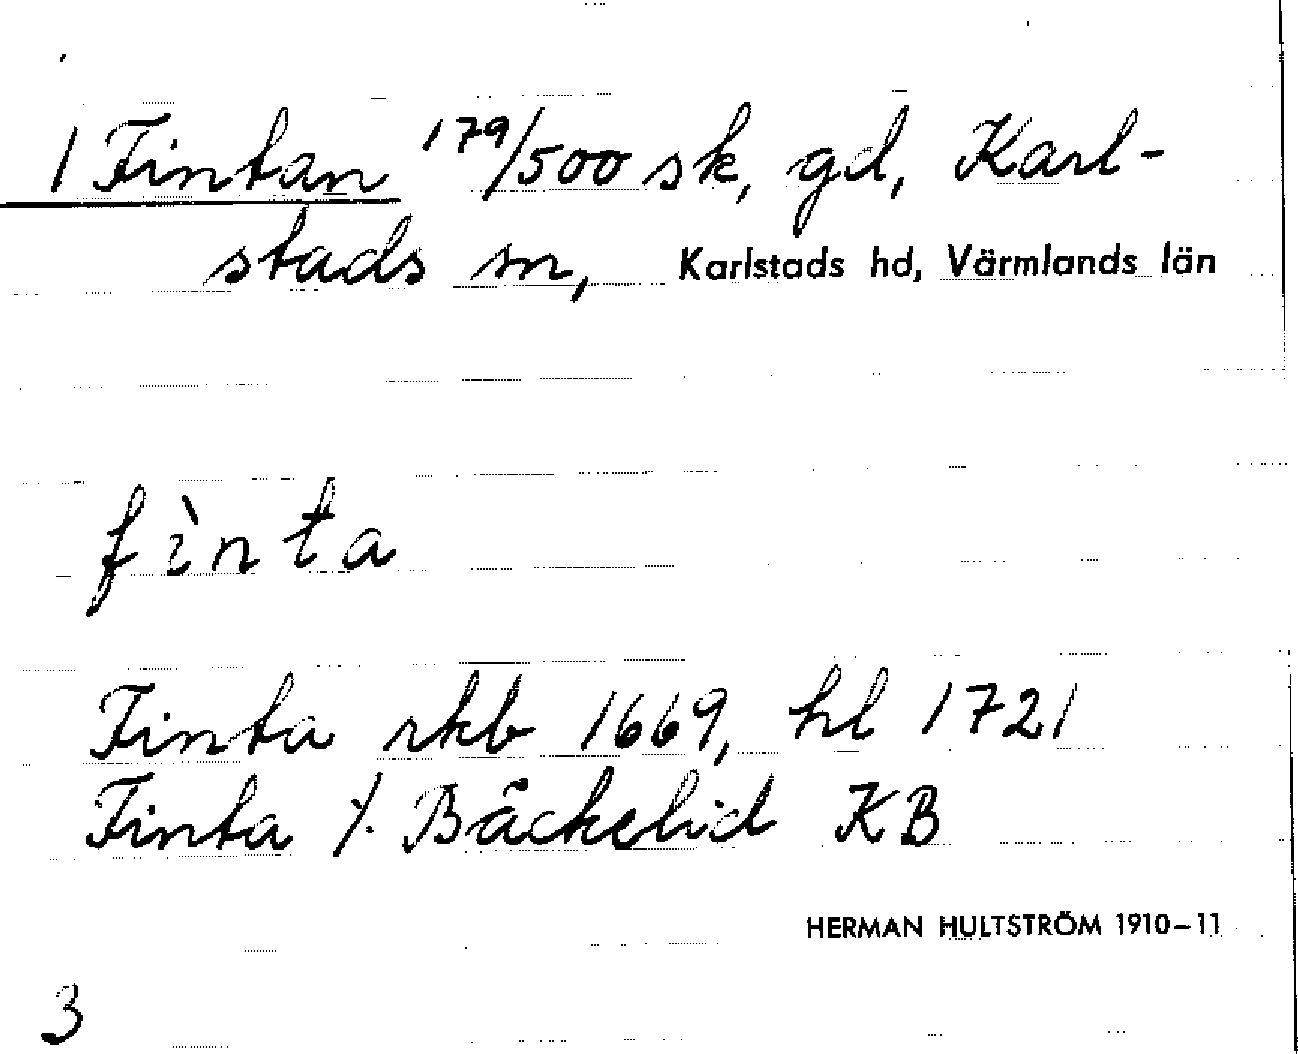 1 Fintan 179/500 sk, gd, Karl-
stads sn, Karlstads hd, Värmlands län
fìnta
Finta rkb 1669, hl 1721
Finta ⁒ Bäckelid KB
HERMAN HULTSTRÖM 1910–11
3